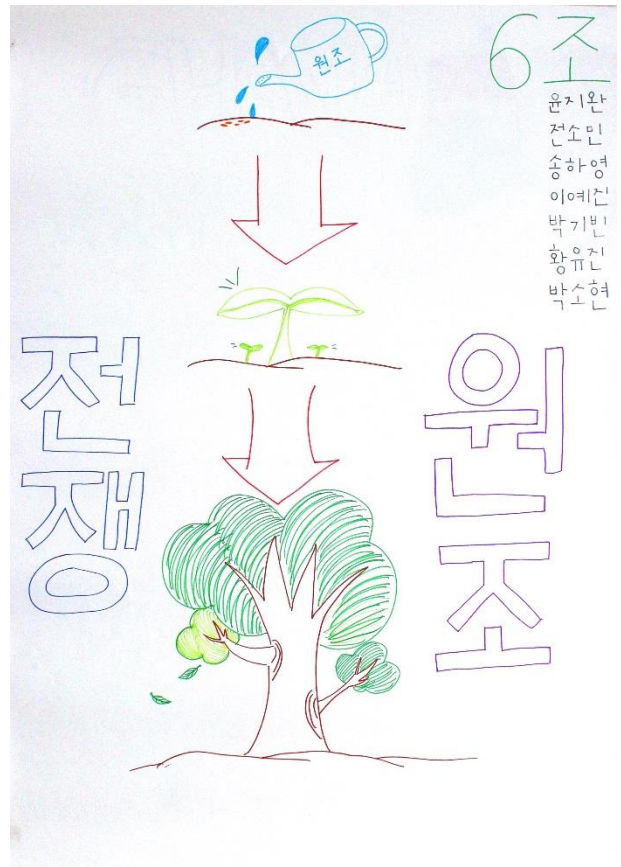 원조
6조
윤지완
전소민
송하영
이예진
박기빈
황유진
박소현
전쟁
원조